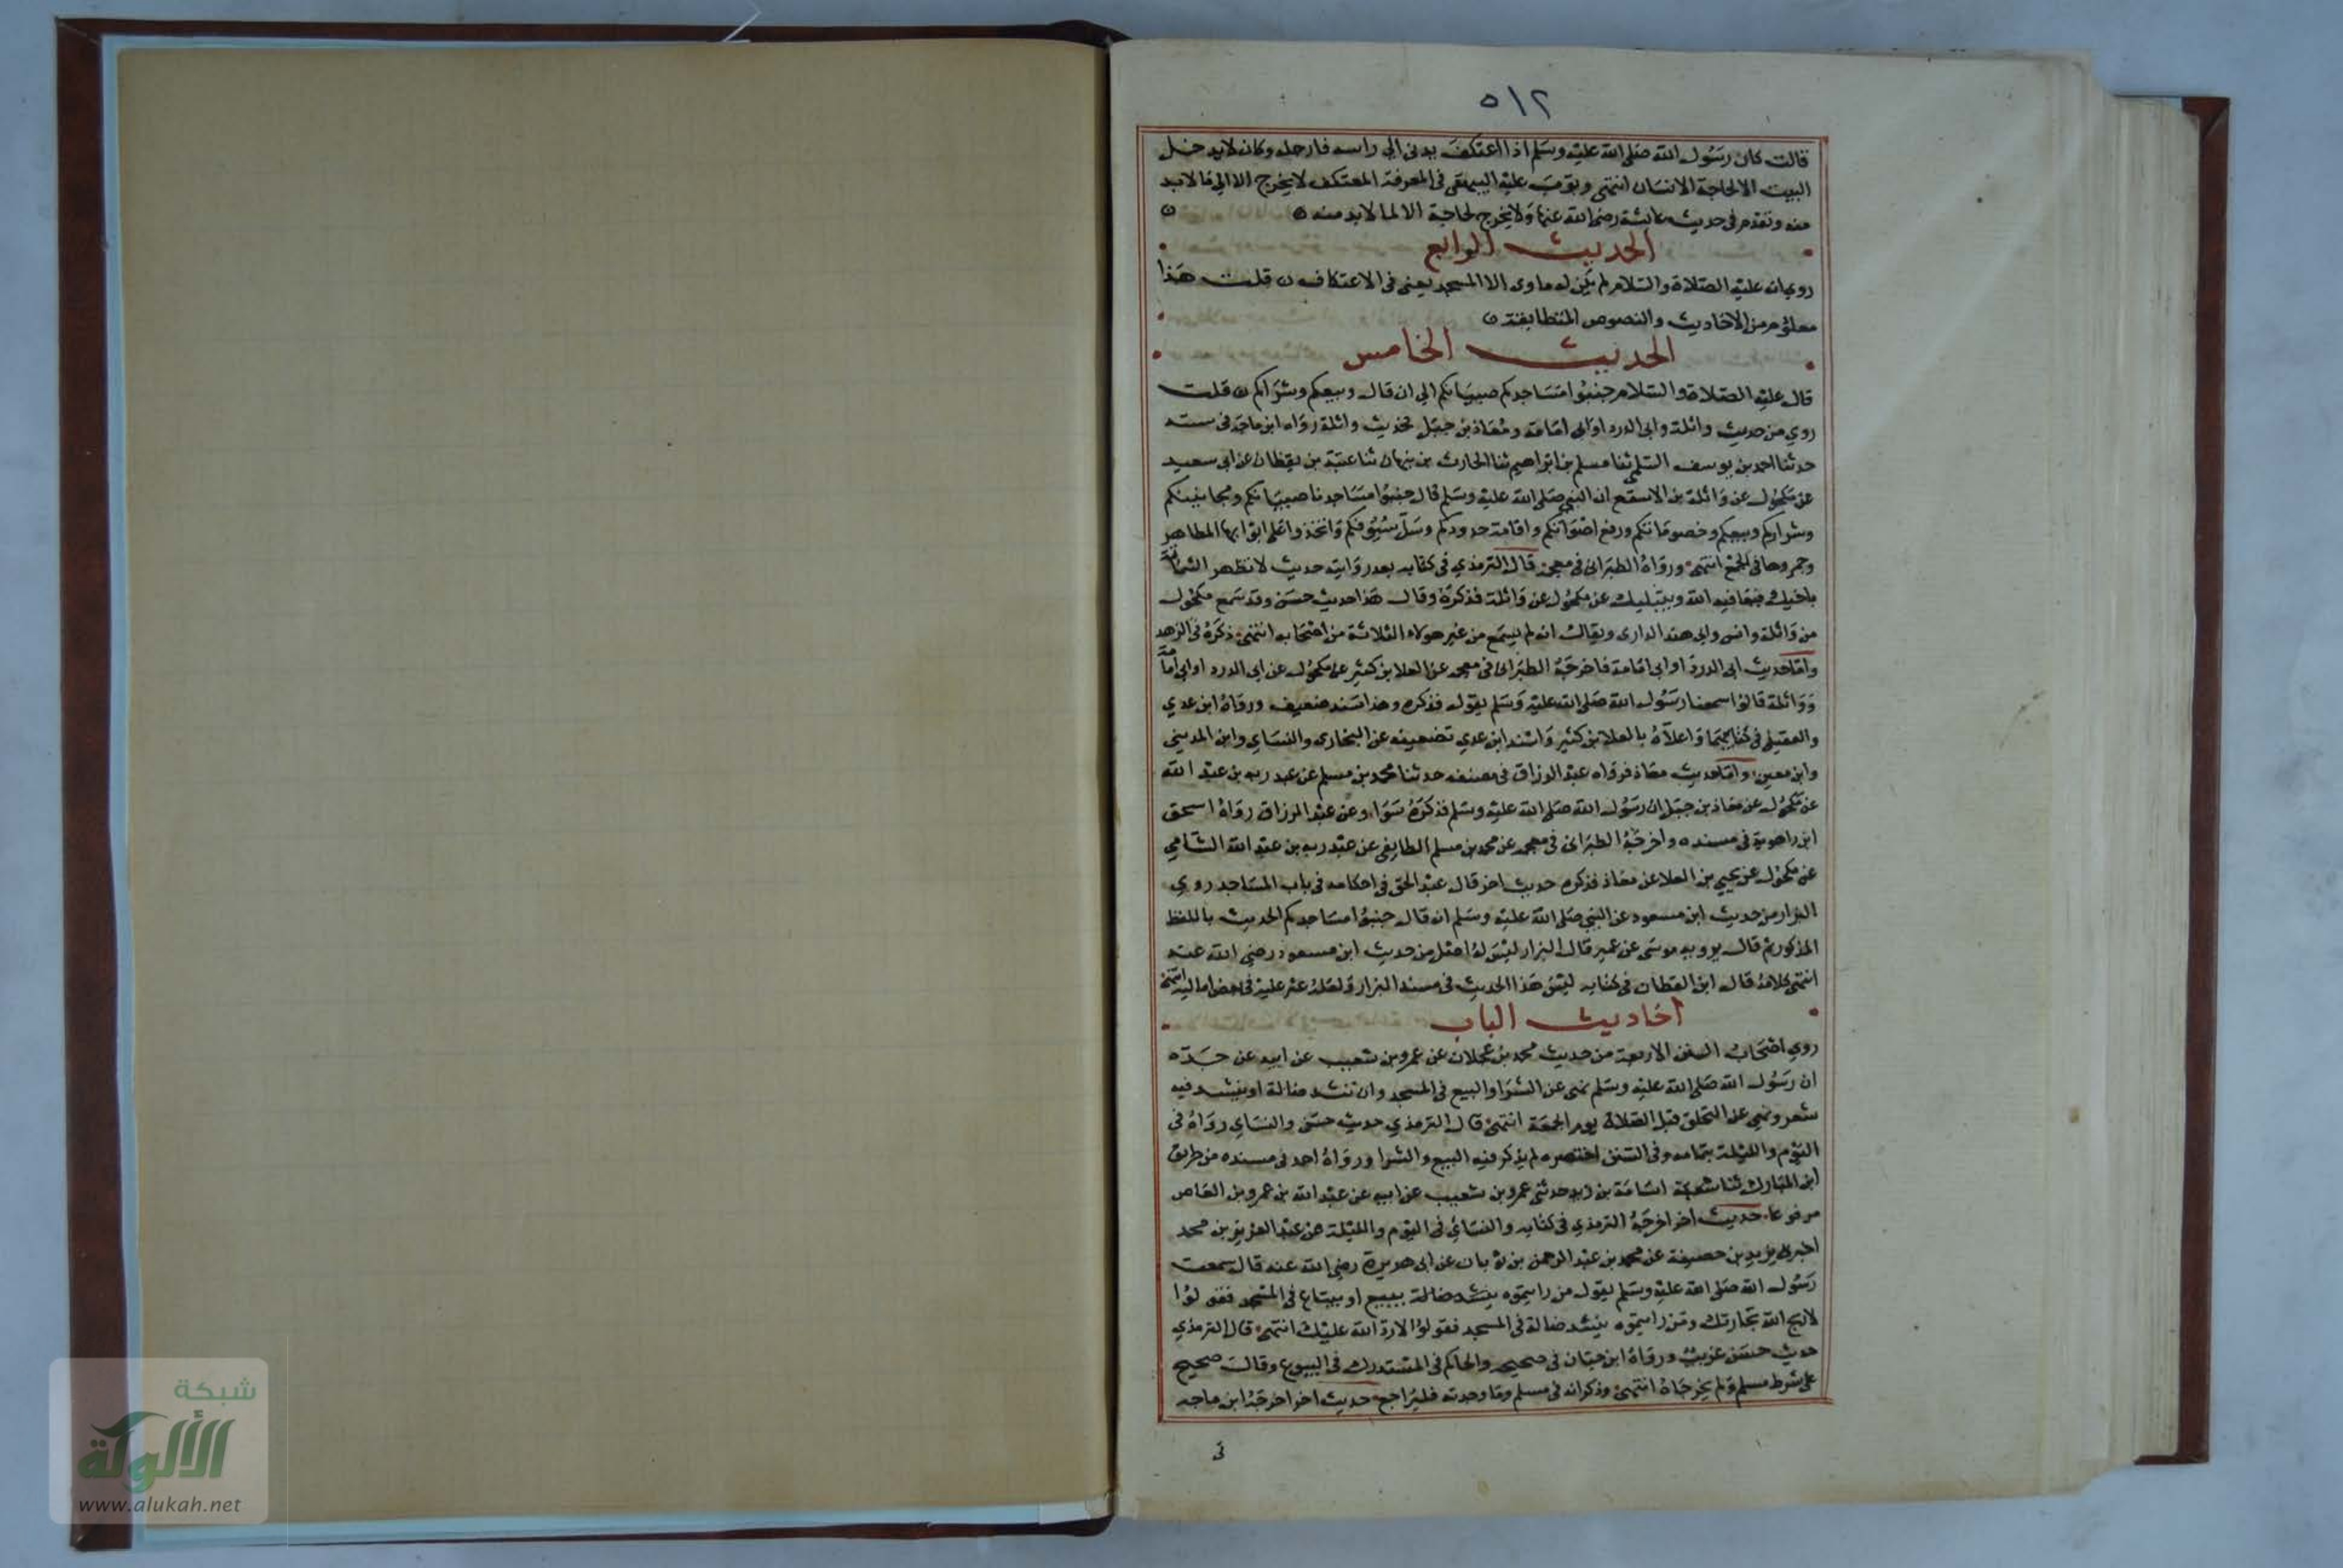 ٥١٢
قالت كان رسول الله صلى الله عليه وسلم اذا اعتكف يدنى الي راسه فارجله وكان لا يدخل
البيت الا لحاجة الانسان انتهى وبوب عليه البيهقى فى المعرفة المعتكف لا يخرج الا الي ما لابد
منه وتقدم فى حديث عائشة رضى الله عنها ولا يخرج لحاجة الا لما لابد منه
الحديث الرابع
روي انه عليه الصلاة والسلام لم يكن له ماوى الا المسجد يعنى فى الاعتكاف قلت هذا
معلوم من الاحاديث والنصوص المتطابقة
الحديث الخامس
قال عليه الصلاة والسلام جنبوا مساجدكم صبيانكم الي ان قال وبيعكم وشراكم قلت
روي من حديث واثلة وابى الدردا وابى امامة ومعاذ بن جبل فحديث واثلة رواه ابن ماجة فى سننه
حدثنا احمد بن يوسف السلمى ثنا مسلم بن ابراهيم ثنا الحارث بن نبهان ثنا عتبة بن يقظان عن ابى سعيد
عن مكحول عن واثلة بن الاسقع ان النبى صلى الله عليه وسلم قال جنبوا مساجدنا صبيانكم ومجانينكم
وشراركم وبيعكم وخصوماتكم ورفع اصواتكم واقامة حدودكم وسل سيوفكم واتخذوا على ابوابها المطاهر
وجمروها فى الجمع انتهى ورواه الطبرانى فى معجمه قال الترمذي فى كتابه بعد روايته حديث لا تظهر الشماتة
باخيك فيعافيه الله ويبتليك عن مكحول عن واثلة فذكره وقال هذا حديث حسن وقد سمع مكحول
من واثلة وانس وابى هند الدارى ويقال انه لم يسمع من غير هولاء الثلاثة من اصحابه انتهى ذكره فى الزهد
واما حديث ابى الدردا وابى امامة فاخرجه الطبرانى فى معجمه عن العلا بن كثير عن مكحول عن ابى الدردا وابى امامة
وواثلة قالوا سمعنا رسول الله صلى الله عليه وسلم يقول فذكره وهذا سند ضعيف ورواه ابن عدي
والعقيلى فى كتابيهما واعلاه بالعلا بن كثير واسند ابن عدي تضعيفه عن البخارى والنساي وابن المديني
وابن معين واما حديث معاذ فرواه عبد الرزاق فى مصنفه حدثنا محمد بن مسلم عن عبد ربه بن عبد الله
عن مكحول عن معاذ بن جبل ان رسول الله صلى الله عليه وسلم فذكره سوا وعن عبد الرزاق رواه اسحق
ابن راهوية فى مسنده واخرجه الطبرانى فى معجمه عن محمد بن مسلم الطايفى عن عبد ربه بن عبد الله الشامي
عن مكحول عن يحيى بن العلا عن معاذ فذكره حديث اخر قال عبد الحق فى احكامه فى باب المساجد روي
البزار من حديث ابن مسعود عن النبي صلى الله عليه وسلم انه قال جنبوا مساجدكم الحديث باللفظ
المذكور ثم قال يرويه موسى عن عمير قال البزار ليس له اصل من حديث ابن مسعود رضي الله عنه
انتهى كلامه قال ابن القطان فى كتابه ليس هذا الحديث فى مسند البزار ولعله عثر عليه فى بعض اماليه انتهى
احاديث الباب
روي اصحاب السنن الاربعة من حديث محمد بن عجلان عن عمرو بن شعيب عن ابيه عن جده
ان رسول الله صلى الله عليه وسلم نهى عن الشرا والبيع فى المسجد وان تنشد ضالة او ينشد فيه
شعر ونهي عن التحلق قبل الصلاة يوم الجمعة انتهى قال الترمذي حديث حسن والنساي رواه فى
اليوم والليلة بتمامه وفى السنن اختصره لم يذكر فيه البيع والشرا ورواه احمد فى مسنده من طريق
ابن المبارك ثنا اسامة بن زيد حدثنى عمرو بن شعيب عن ابيه عن عبد الله بن عمرو بن العاص
مرفوعا حديث اخر اخرجه الترمذي فى كتابه والنسائي فى اليوم والليلة عن عبد العزيز بن محمد
اخبرنى يزيد بن حصيفة عن محمد بن عبد الرحمن بن ثوبان عن ابى هريرة رضي الله عنه قال سمعت
رسول الله صلى الله عليه وسلم يقول من رايتموه ينشد ضالة يبيع او يبتاع فى المسجد فقولوا
لا اربح الله تجارتك ومن رايتموه ينشد ضالة فى المسجد فقولوا لا رد الله عليك انتهى قال الترمذي
حديث حسن غريب ورواه ابن حبان فى صحيحه والحاكم فى المستدرك فى البيوع وقال صحيح
على شرط مسلم ولم يخرجاه انتهى وذكر انه فى مسلم وما وجدته فليراجع حديث اخر اخرجه ابن ماجه
فى
شبكة
الألوكة
www.alukah.net